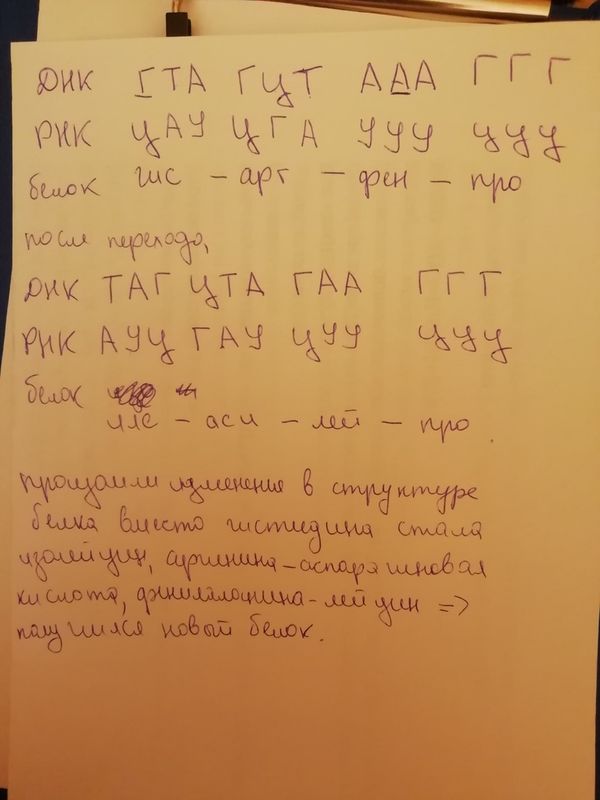 ДНК ГТА ГЦТ ААА ГГГ
РНК ЦАУ ЦГА УУУ ЦЦЦ
белок гис - арг - фен - про
после перехода,
ДНК ТАГ ЦТА ГАА ГГГ
РНК АУЦ ГАУ ЦУУ ЦЦЦ
белок
иле - асп - лей - про.
прощошли изменения в структуре
белка вместо гистидина стала
изолейцин, аргинина - аспарагиновая
кислота, финилаланина - лейцин =>
получился новый белок.